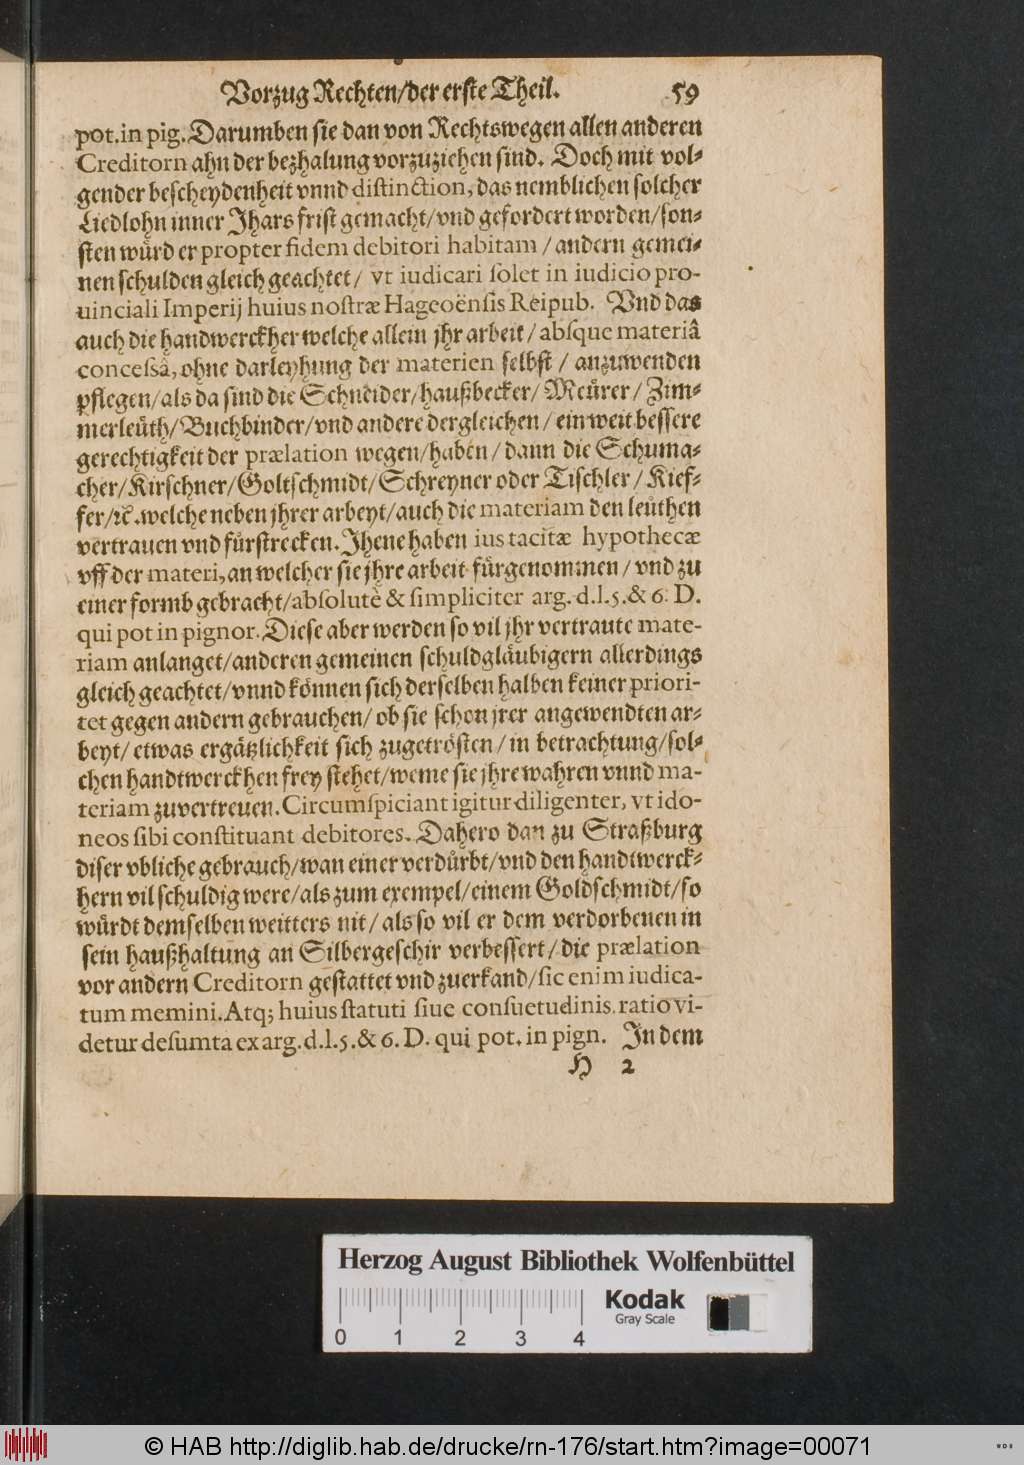 Vorzug Rechten/der erste Theil. 59
pot.in pig. Darumben sie dan von Rechtswegen allen anderen
Creditorn ahn der bezhalung vorzuziehen sind. Doch mit vol-
gender bescheydenheit vnnd distinction, das nemblichen solcher
Liedlohn inner Jhars frist gemacht/vnd gefordert worden/son-
sten wuͤrd er propter fidem debitori habitam / andern gemei-
nen schulden gleich geachtet/ vt iudicari solet in iudicio pro-
uinciali Imperij huius nostræ Hageoënsis Reipub. Vnd das
auch die handwerckher welche allein jhr arbeit/ absque materiâ
concessâ, ohne darleyhung der materien selbst / anzuwenden
pflegen/als da sind die Schneider/haußbecker/ Meuͤrer/ Zim-
merleuͤth/Buchbinder/vnd andere dergleichen / ein weit bessere
gerechtigkeit der prælation wegen/haben/ dann die Schuma-
cher/Kirschner/Goltschmidt/Schreyner oder Tischler / Kief-
fer/ꝛc. welche neben jhrer arbeyt/auch die materiam den leuͤthen
vertrauen vnd fuͤrstrecken. Jhene haben ius tacitæ hypothecæ
vff der materi, an welcher sie jhre arbeit fuͤrgenommen/ vnd zu
einer formb gebracht/absolutè & simpliciter arg. d.l.5.& 6. D.
qui pot in pignor. Diese aber werden so vil jhr vertraute mate-
riam anlanget/anderen gemeinen schuldglaͤubigern allerdings
gleich geachtet/vnnd koͤnnen sich derselben halben keiner priori-
tet gegen andern gebrauchen/ ob sie schon jrer angewendten ar-
beyt/ etwas ergaͤtzlichkeit sich zugetroͤsten/ in betrachtung/sol-
chen handtwerckhen frey stehet/weme sie jhre wahren vnnd ma-
teriam zuvertreuen. Circumspiciant igitur diligenter, vt ido-
neos sibi constituant debitores. Dahero dan zu Straßburg
diser vbliche gebrauch/wan einer verduͤrbt/vnd den handtwerck-
hern vil schuldig were/als zum exempel/einem Goldschmidt/so
wuͤrdt demselben weitters nit/ als so vil er dem verdorbenen in
sein haußhaltung an Silbergeschir verbessert/ die prælation
vor andern Creditorn gestattet vnd zuerkand/sic enim iudica-
tum memini. Atq; huius statuti siue consuetudinis ratio vi-
detur desumta ex arg. d.l.5.& 6. D. qui pot. in pign. In dem
H 2
Herzog August Bibliothek Wolfenbüttel
Kodak
Gray Scale
0 1 2 3 4
© HAB http://diglib.hab.de/drucke/rn-176/start.htm?image=00071